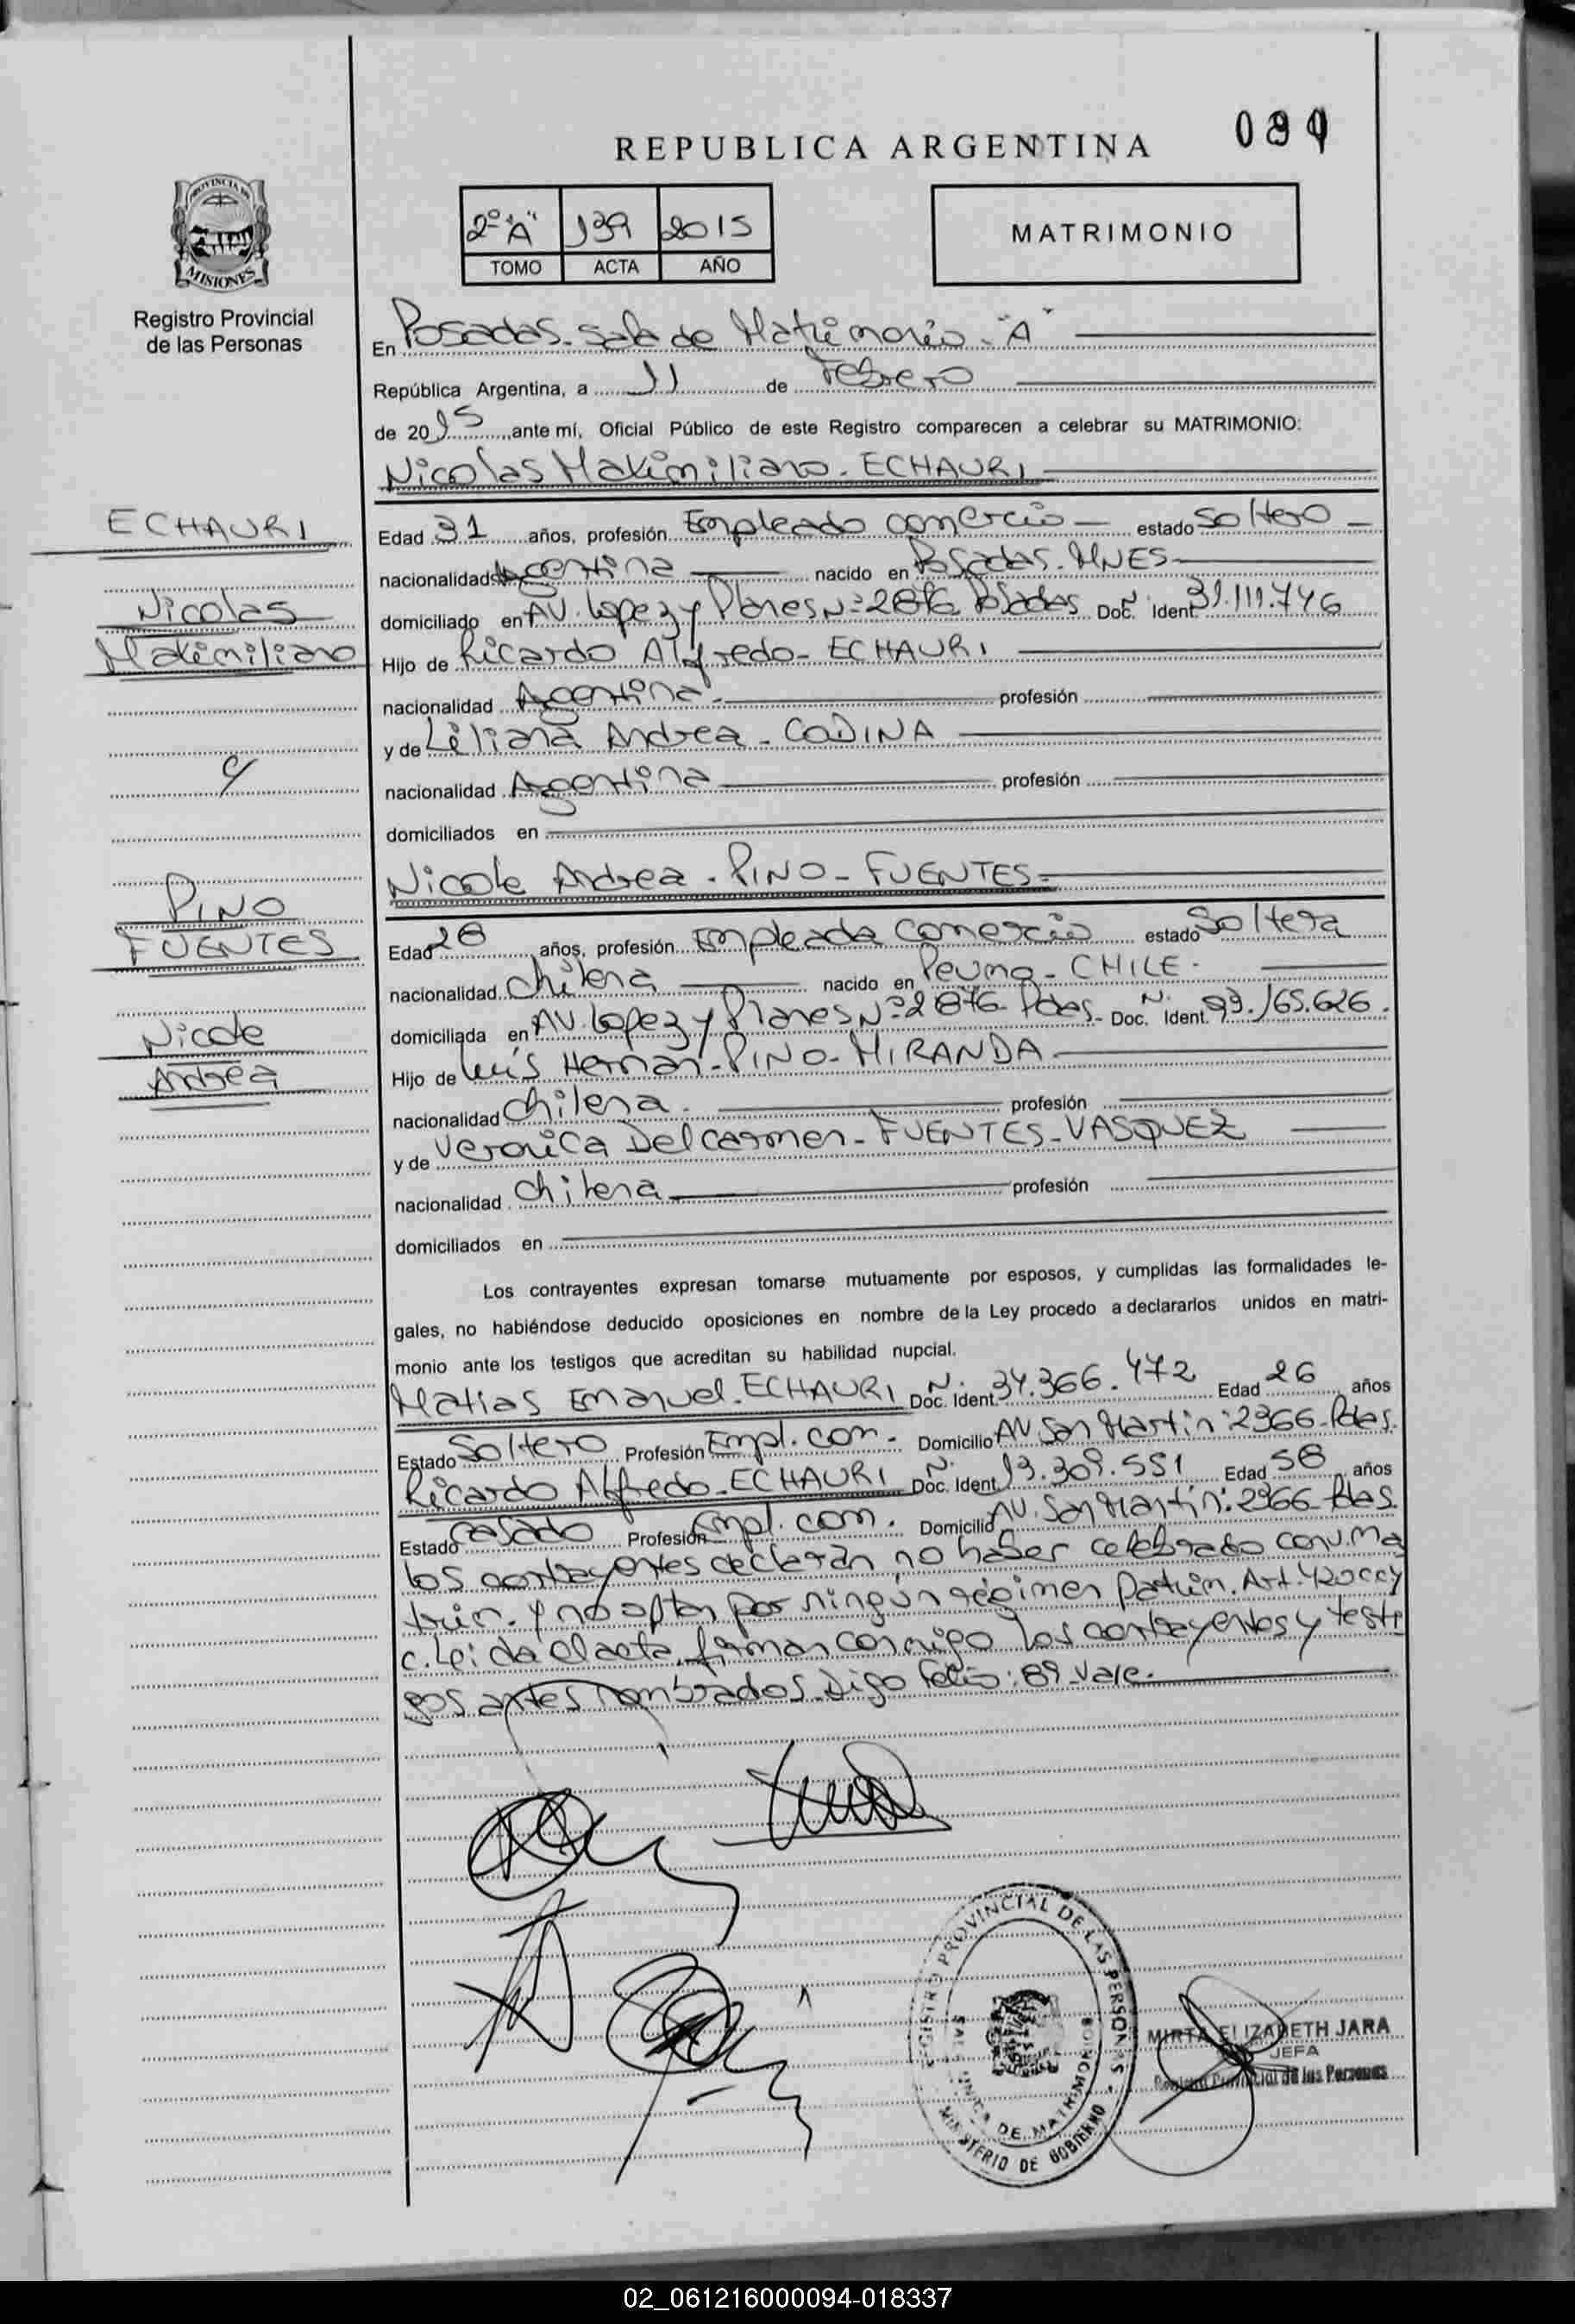 REPUBLICA ARGENTINA
2º "A" 139 2015
TOMO ACTA AÑO
MATRIMONIO
PROVINCIA DE
MISIONES
Registro Provincial
de las Personas
En Posadas. Sala de Matrimonio. "A"
República Argentina, a 11 de Febrero
de 2015 ante mí, Oficial Público de este Registro comparecen a celebrar su MATRIMONIO:
Nicolas Maximiliano. ECHAURI
ECHAURI
Nicolas
Maximiliano
c/
PINO
FUENTES
Nicole
Andrea
Edad 31 años, profesión Empleado comercio estado Soltero
nacionalidad Argentina nacido en Posadas. MNES
domiciliado en AV. Lopez y Planes Nº 2876 Posadas Doc. N. Ident. 31.111.746
Hijo de Ricardo Alfredo - ECHAURI
nacionalidad Argentina profesión
y de Liliana Andrea - CODINA
nacionalidad Argentina profesión
domiciliados en
Nicole Andrea - PINO - FUENTES
Edad 28 años, profesión Empleada Comercio estado Soltera
nacionalidad Chilena nacido en Peumo - CHILE
domiciliada en AV. Lopez y Planes Nº 2876 Pdas. Doc. N. Ident. 93.165.626.
Hijo de Luis Hernan - PINO - MIRANDA
nacionalidad Chilena. profesión
y de Veronica Del carmen - FUENTES - VASQUEZ
nacionalidad Chilena profesión
domiciliados en
Los contrayentes expresan tomarse mutuamente por esposos, y cumplidas las formalidades le-
gales, no habiéndose deducido oposiciones en nombre de la Ley procedo a declararlos unidos en matri-
monio ante los testigos que acreditan su habilidad nupcial.
Matias Emanuel. ECHAURI Doc. N. Ident. 34.366.472 Edad 26 años
Estado Soltero Profesión Empl. com. Domicilio AV San Martin: 2366 - Pdas.
Ricardo Alfredo - ECHAURI Doc. N. Ident. 13.309.551 Edad 58 años
Estado Casado Profesión Empl. com. Domicilio AV. San Martín: 2366 - Pdas.
Los contrayentes declarán no haber celebrado conv. ma
trim. y no optan por ningún régimen patrim. Art. 420 CCy
C. Leida el acta, firman conmigo los contrayentes y testi
gos antes nombrados. Digo Folio: 89 - Vale.
REGISTRO PROVINCIAL DE LAS PERSONAS
DE MATRIMONIO
MINISTERIO DE GOBIERNO
MIRTA ELIZABETH JARA
JEFA
Registro Provincial de las Personas
02_061216000094-018337